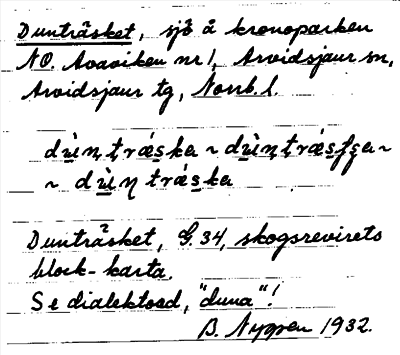 Dunträsket, sjö å kronoparken
NO. Avaviken nr 1, Arvidsjaur sn,
Arvidsjaur tg, Norrb. l.
dùṇ tṛǽska ~ dùṇṭrǽsʃʂa ~
~ dùṇ trǽska
Dunträsket, G. 34, skogsrevirets
block-karta.
Se dialektord, "duna"!
B. Nygren 1932.